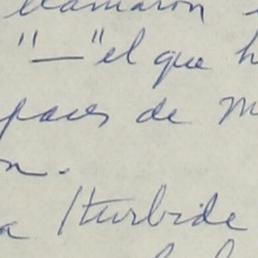 llamaron
"—" el que h
paces de M
n.
a Iturbide